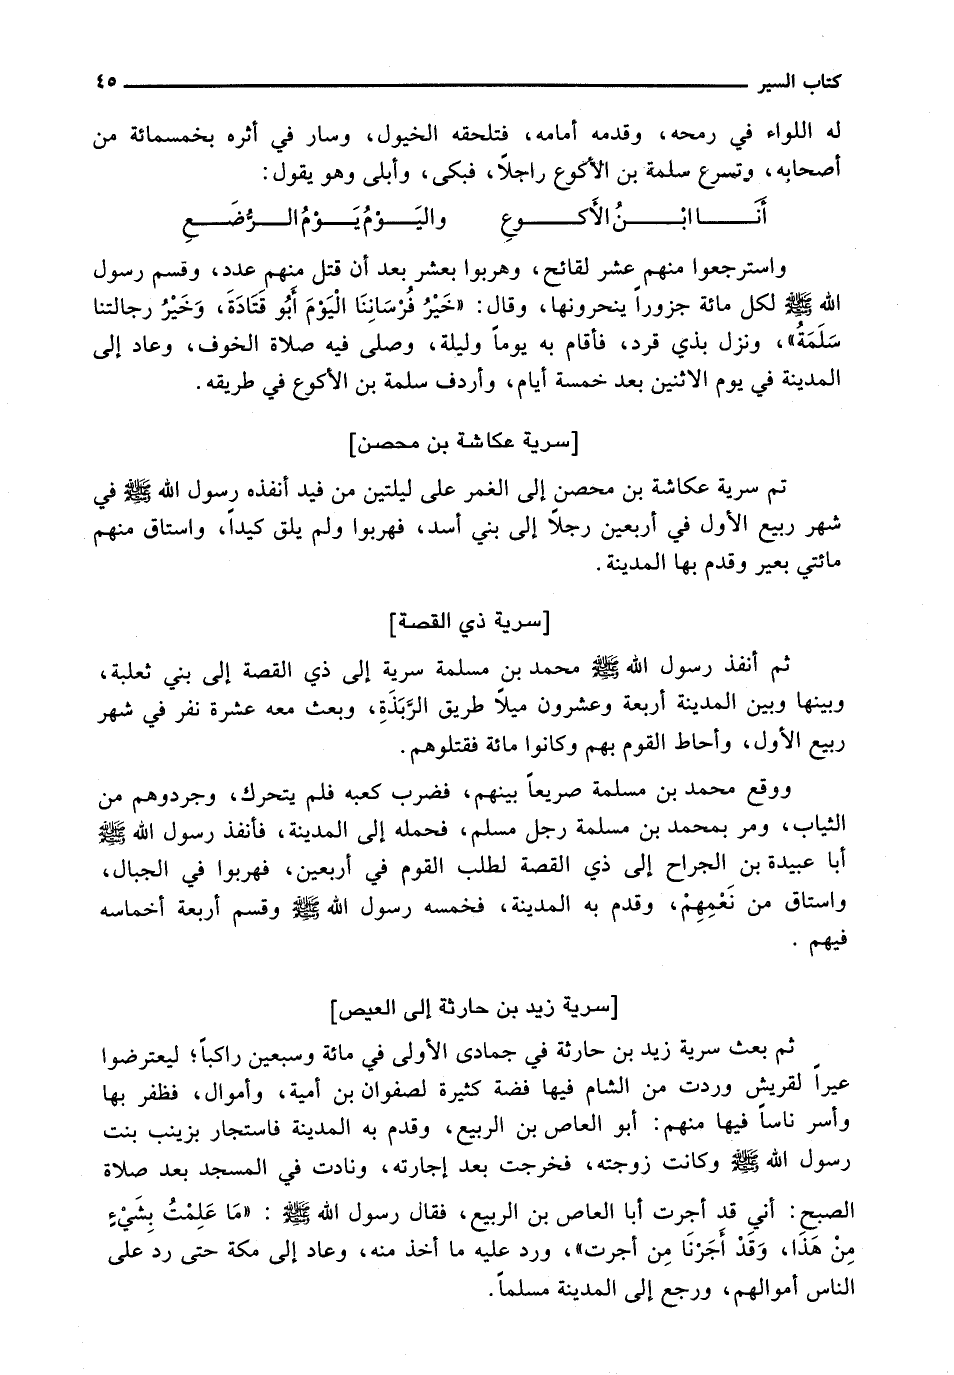 كتاب السير ٤٥
له اللواء في رمحه، وقدمه أمامه، فتلحقه الخيول، وسار في أثره بخمسمائة من
أصحابه، وتسرع سلمة بن الأكوع راجلاً، فبكى، وأبلى وهو يقول:
أَنَا ابْنُ الأَكْوعِ واليَوْمُ يَوْمُ الرُّضَّعِ
واسترجعوا منهم عشر لقائح، وهربوا بعشر بعد أن قتل منهم عدد، وقسم رسول
الله ﷺ لكل مائة جزوراً ينحرونها، وقال: «خَيْرُ فُرْسَانِنَا الْيَوْمَ أَبُو قَتَادَةَ، وَخَيْرُ رجالتنا
سَلَمَةُ»، ونزل بذي قرد، فأقام به يوماً وليلة، وصلى فيه صلاة الخوف، وعاد إلى
المدينة في يوم الاثنين بعد خمسة أيام، وأردف سلمة بن الأكوع في طريقه.
[سرية عكاشة بن محصن]
تم سرية عكاشة بن محصن إلى الغمر على ليلتين من فيد أنفذه رسول الله ﷺ في
شهر ربيع الأول في أربعين رجلاً إلى بني أسد، فهربوا ولم يلق كيداً، واستاق منهم
مائتي بعير وقدم بها المدينة.
[سرية ذي القصة]
ثم أنفذ رسول الله ﷺ محمد بن مسلمة سرية إلى ذي القصة إلى بني ثعلبة،
وبينها وبين المدينة أربعة وعشرون ميلاً طريق الرَّبَذَةِ، وبعث معه عشرة نفر في شهر
ربيع الأول، وأحاط القوم بهم وكانوا مائة فقتلوهم.
ووقع محمد بن مسلمة صريعاً بينهم، فضرب كعبه فلم يتحرك، وجردوهم من
الثياب، ومر بمحمد بن مسلمة رجل مسلم، فحمله إلى المدينة، فأنفذ رسول الله ﷺ
أبا عبيدة بن الجراح إلى ذي القصة لطلب القوم في أربعين، فهربوا في الجبال،
واستاق من نَعْمِهِمْ، وقدم به المدينة، فخمسه رسول الله ﷺ وقسم أربعة أخماسه
فيهم .
[سرية زيد بن حارثة إلى العيص]
ثم بعث سرية زيد بن حارثة في جمادى الأولى في مائة وسبعين راكباً؛ ليعترضوا
عيراً لقريش وردت من الشام فيها فضة كثيرة لصفوان بن أمية، وأموال، فظفر بها
وأسر ناساً فيها منهم: أبو العاص بن الربيع، وقدم به المدينة فاستجار بزينب بنت
رسول الله ﷺ وكانت زوجته، فخرجت بعد إجارته، ونادت في المسجد بعد صلاة
الصبح: أني قد أجرت أبا العاص بن الربيع، فقال رسول الله ﷺ : «مَا عَلِمْتُ بِشَيْءٍ
مِنْ هَذَا، وَقَدْ أَجَرْنَا مِن أجرت»، ورد عليه ما أخذ منه، وعاد إلى مكة حتى رد على
الناس أموالهم، ورجع إلى المدينة مسلماً.